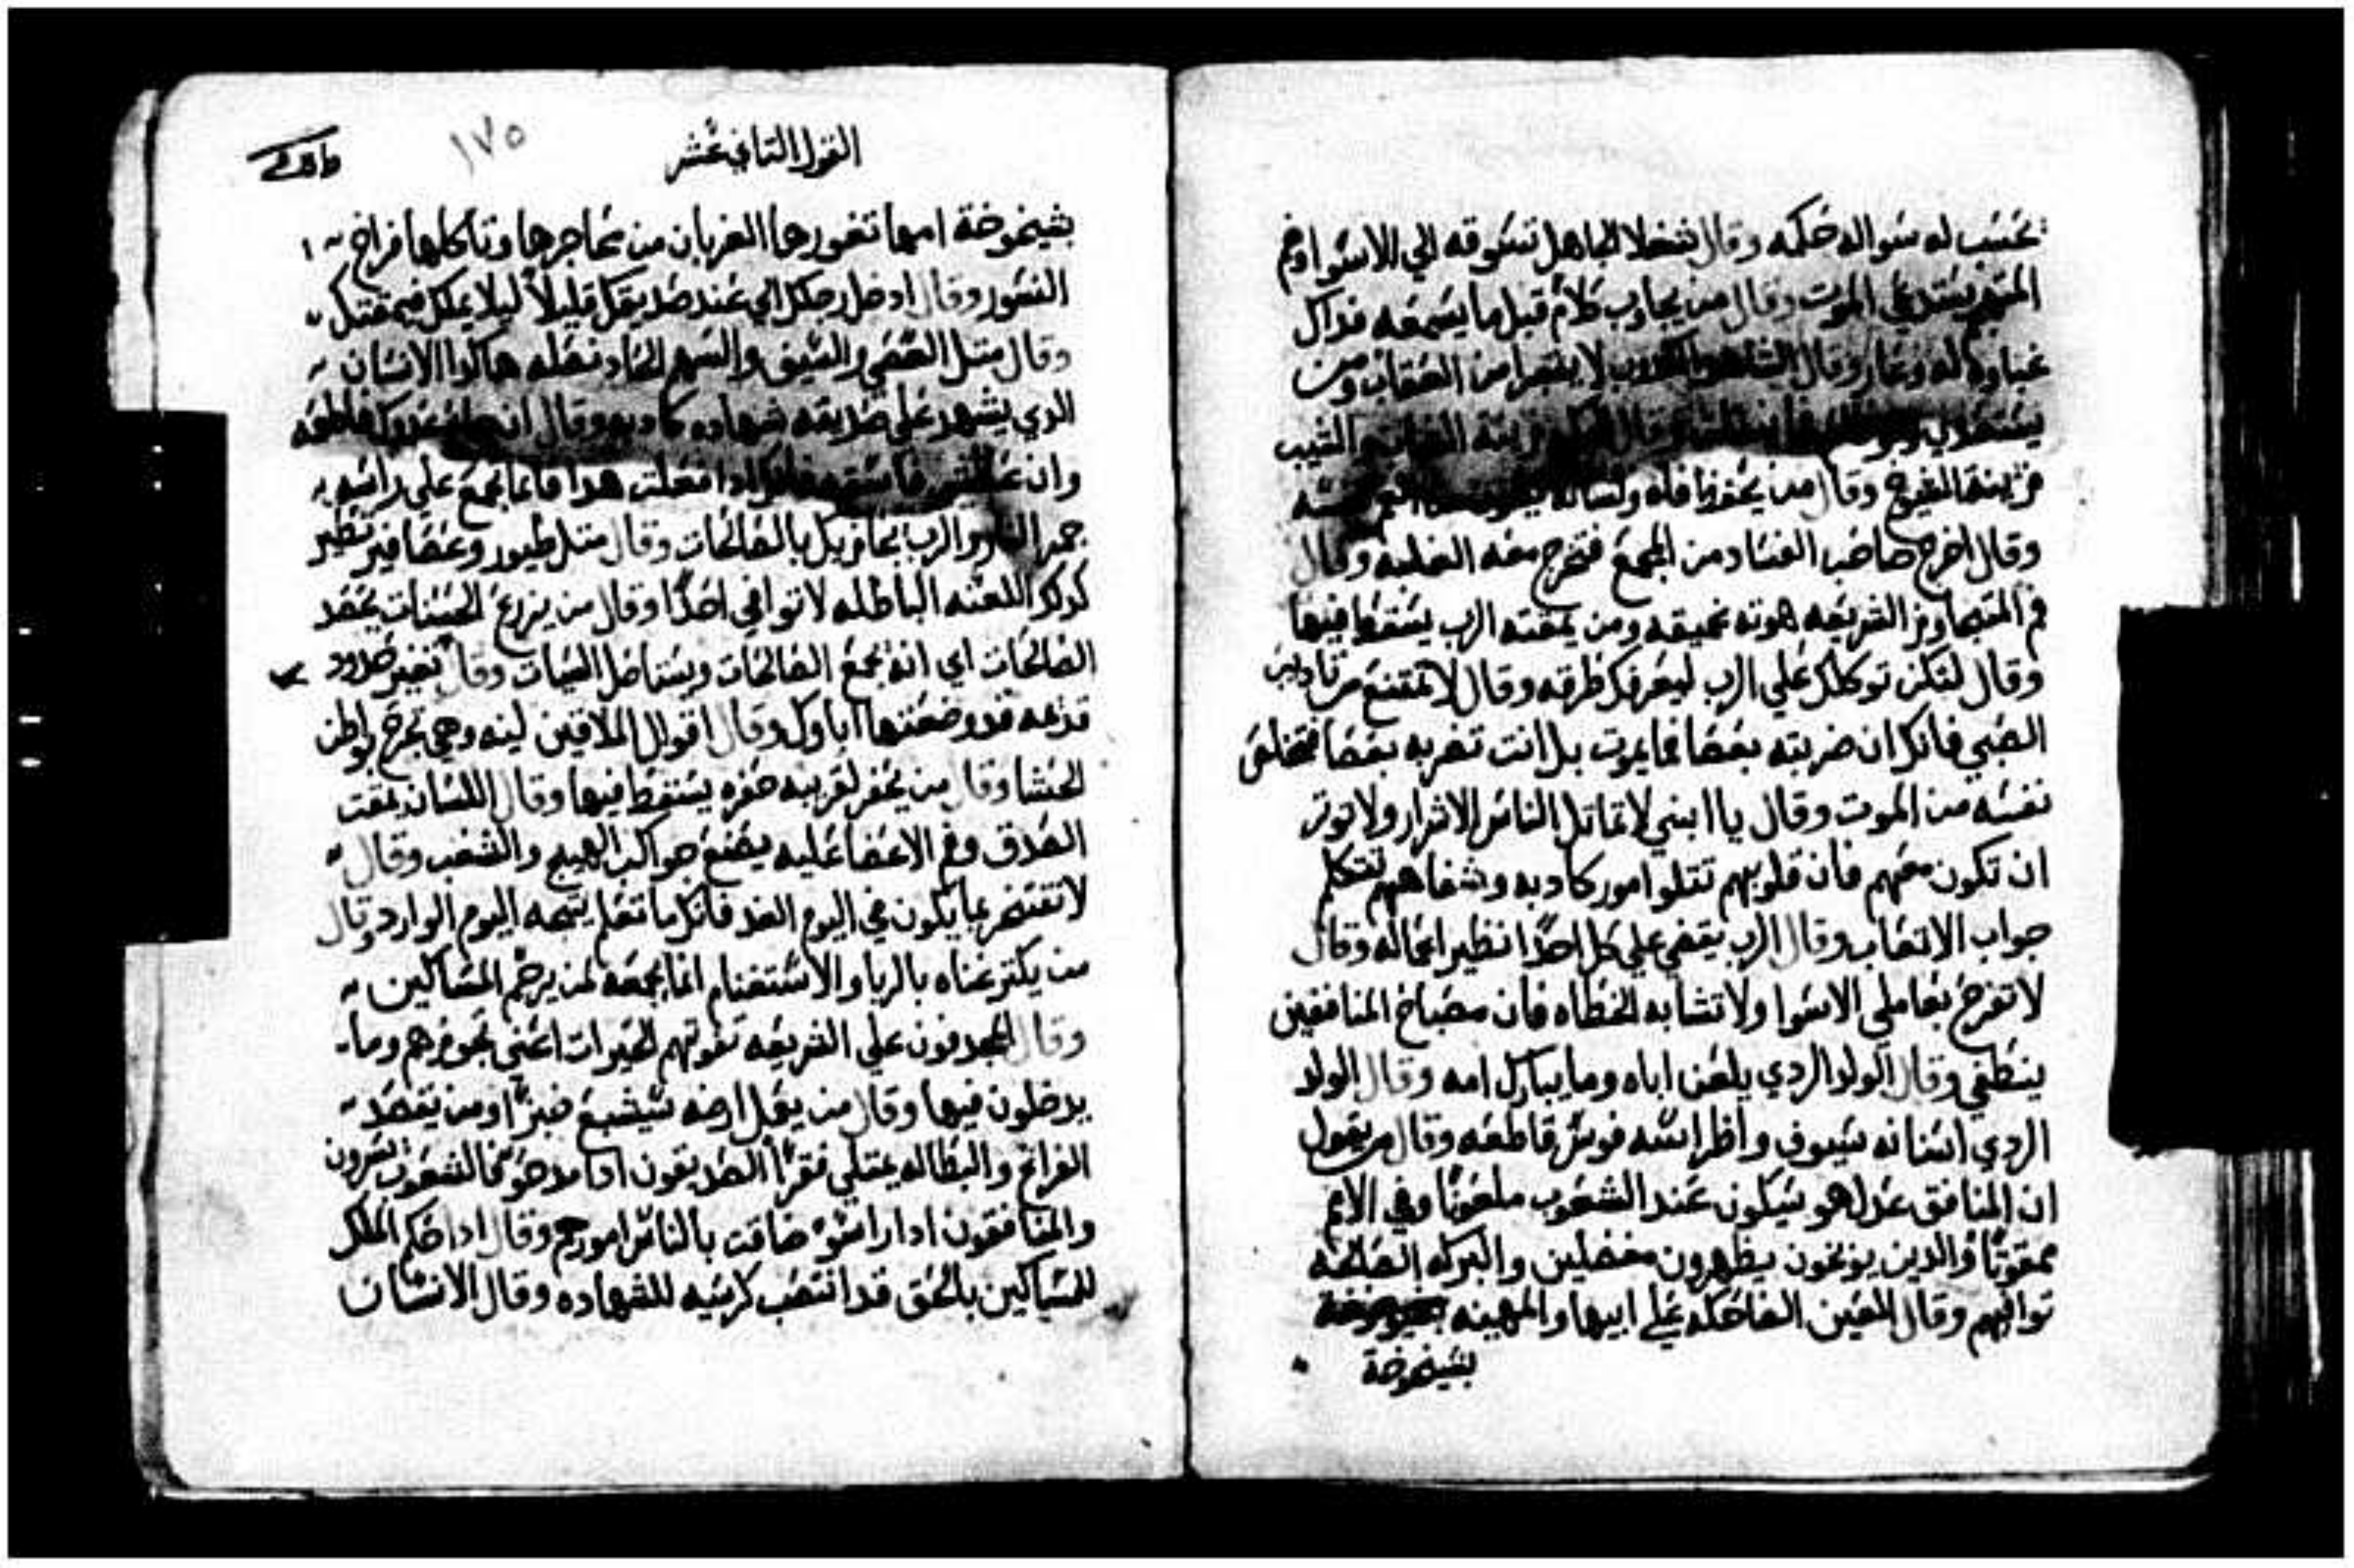 تحسب له سواله حكمه وقال شفتا الجاهل تسوقه الي الاسوا وفم
المتهم يستدعي الموت وقال من يجاوب كلام قبل ما يسمعه فداك
غباوه له وعار وقال الشاهد الكدوب لا يتبرا من العقاب ومن
يستعدي وقال زينة الشبان والشيب
زينة الشيوخ وقال من يحفظ فاه ولسانه نفسه
وقال اخرج صاحب الفساد من المجمع فتخرج معه الغلبه وقال
فم المتجاوز الشريعه هوته عميقه ومن يمقته الرب يسقط فيها
وقال لتكن توكلك علي الرب ليعرفك طرقه وقال لا تمتنع من تاديب
الصبي فانك ان ضربته بعصا فما يموت بل انت تضربه بعصا فتخلص
نفسه من الموت وقال يا ابني لا تماتل الناس الاشرار ولا توتر
ان تكون معهم فان قلوبهم تتلوا امور كادبه وشفاههم تتكلم
جواب الاتعاب وقال الرب يقضي علي كل احدًا نظير اعماله وقال
لا تفرح بعاملي الاسوا ولا تشابه الخطاه فان مصباح المنافقين
ينطفي وقال الولد الردي يلعن اباه وما يبارك امه وقال الولد
الردي اسنانه سيوف واظراسه فوس قاطعه وقال من يقول
ان المنافق عدل هو سيكون عند الشعوب ملعونًا وفي الامم
ممقوتًا والدين يوبخون يظهرون مفضلين والبركه الصالحه
توافيهم وقال العين الضاحكه علي ابيها والمهينه
بشيخوخة
القول التاني عشر
١٧٥
بشيخوخة امها تغورها الغربان من محاجرها وتاكلها فراخ
النسور وقال ادخل رجلك الي عند صديقك قليلاً ليلا يملك فيمقتك
وقال متل العصي والسيف والسهم الحاد نصله هاكدا الانسان
الدي يشهد علي صديقه شهاده كادبه وقال ان جاع عدوك فاطعمه
وان عطش فاسقيه فانك ادا فعلت هدا فانما تجمع علي راسه
جمر النار والرب يجازيك بالصالحات وقال متل طيور وعصافير تطير
كدلك اللعنه الباطله لا توافي احدًا وقال من يزرع الحسنات يحصد
الصالحات اي انه يجمع الصالحات ويستاصل السيات وقال لا تغير حدود
قديمه قد وضعتها اباوك وقال اقوال الملاقين لينه وهي تجرح بواطن
الحشا وقال من يحفر لقريبه حفره يسقط فيها وقال اللسان يمقت
الصدق وفم الاعضا عليه يصنع حواكب الهيج والشغب وقال
لا تفتخر بما يكون في اليوم الغد فانك ما تعلم ينتجه اليوم الوارد وقال
من يكتر غناه بالربا والاستغنام انما يجمعه لمن يرحم المساكين
وقال المجدفون علي الشريعه تفوتهم الخيرات اعني تجوزهم وما
يدخلون فيها وقال من يعمل ارضه سيشبع خبزًا ومن يقصد
الفراغ والبطاله يمتلي فقرًا الصديقون ادا مدحو فالشعوب يسرون
والمنافقون ادا راسو ضاقت بالناس امورهم وقال ادا حكم الملك
للمساكين بالحق قد انتصب كرسيه للشهاده وقال الانسان